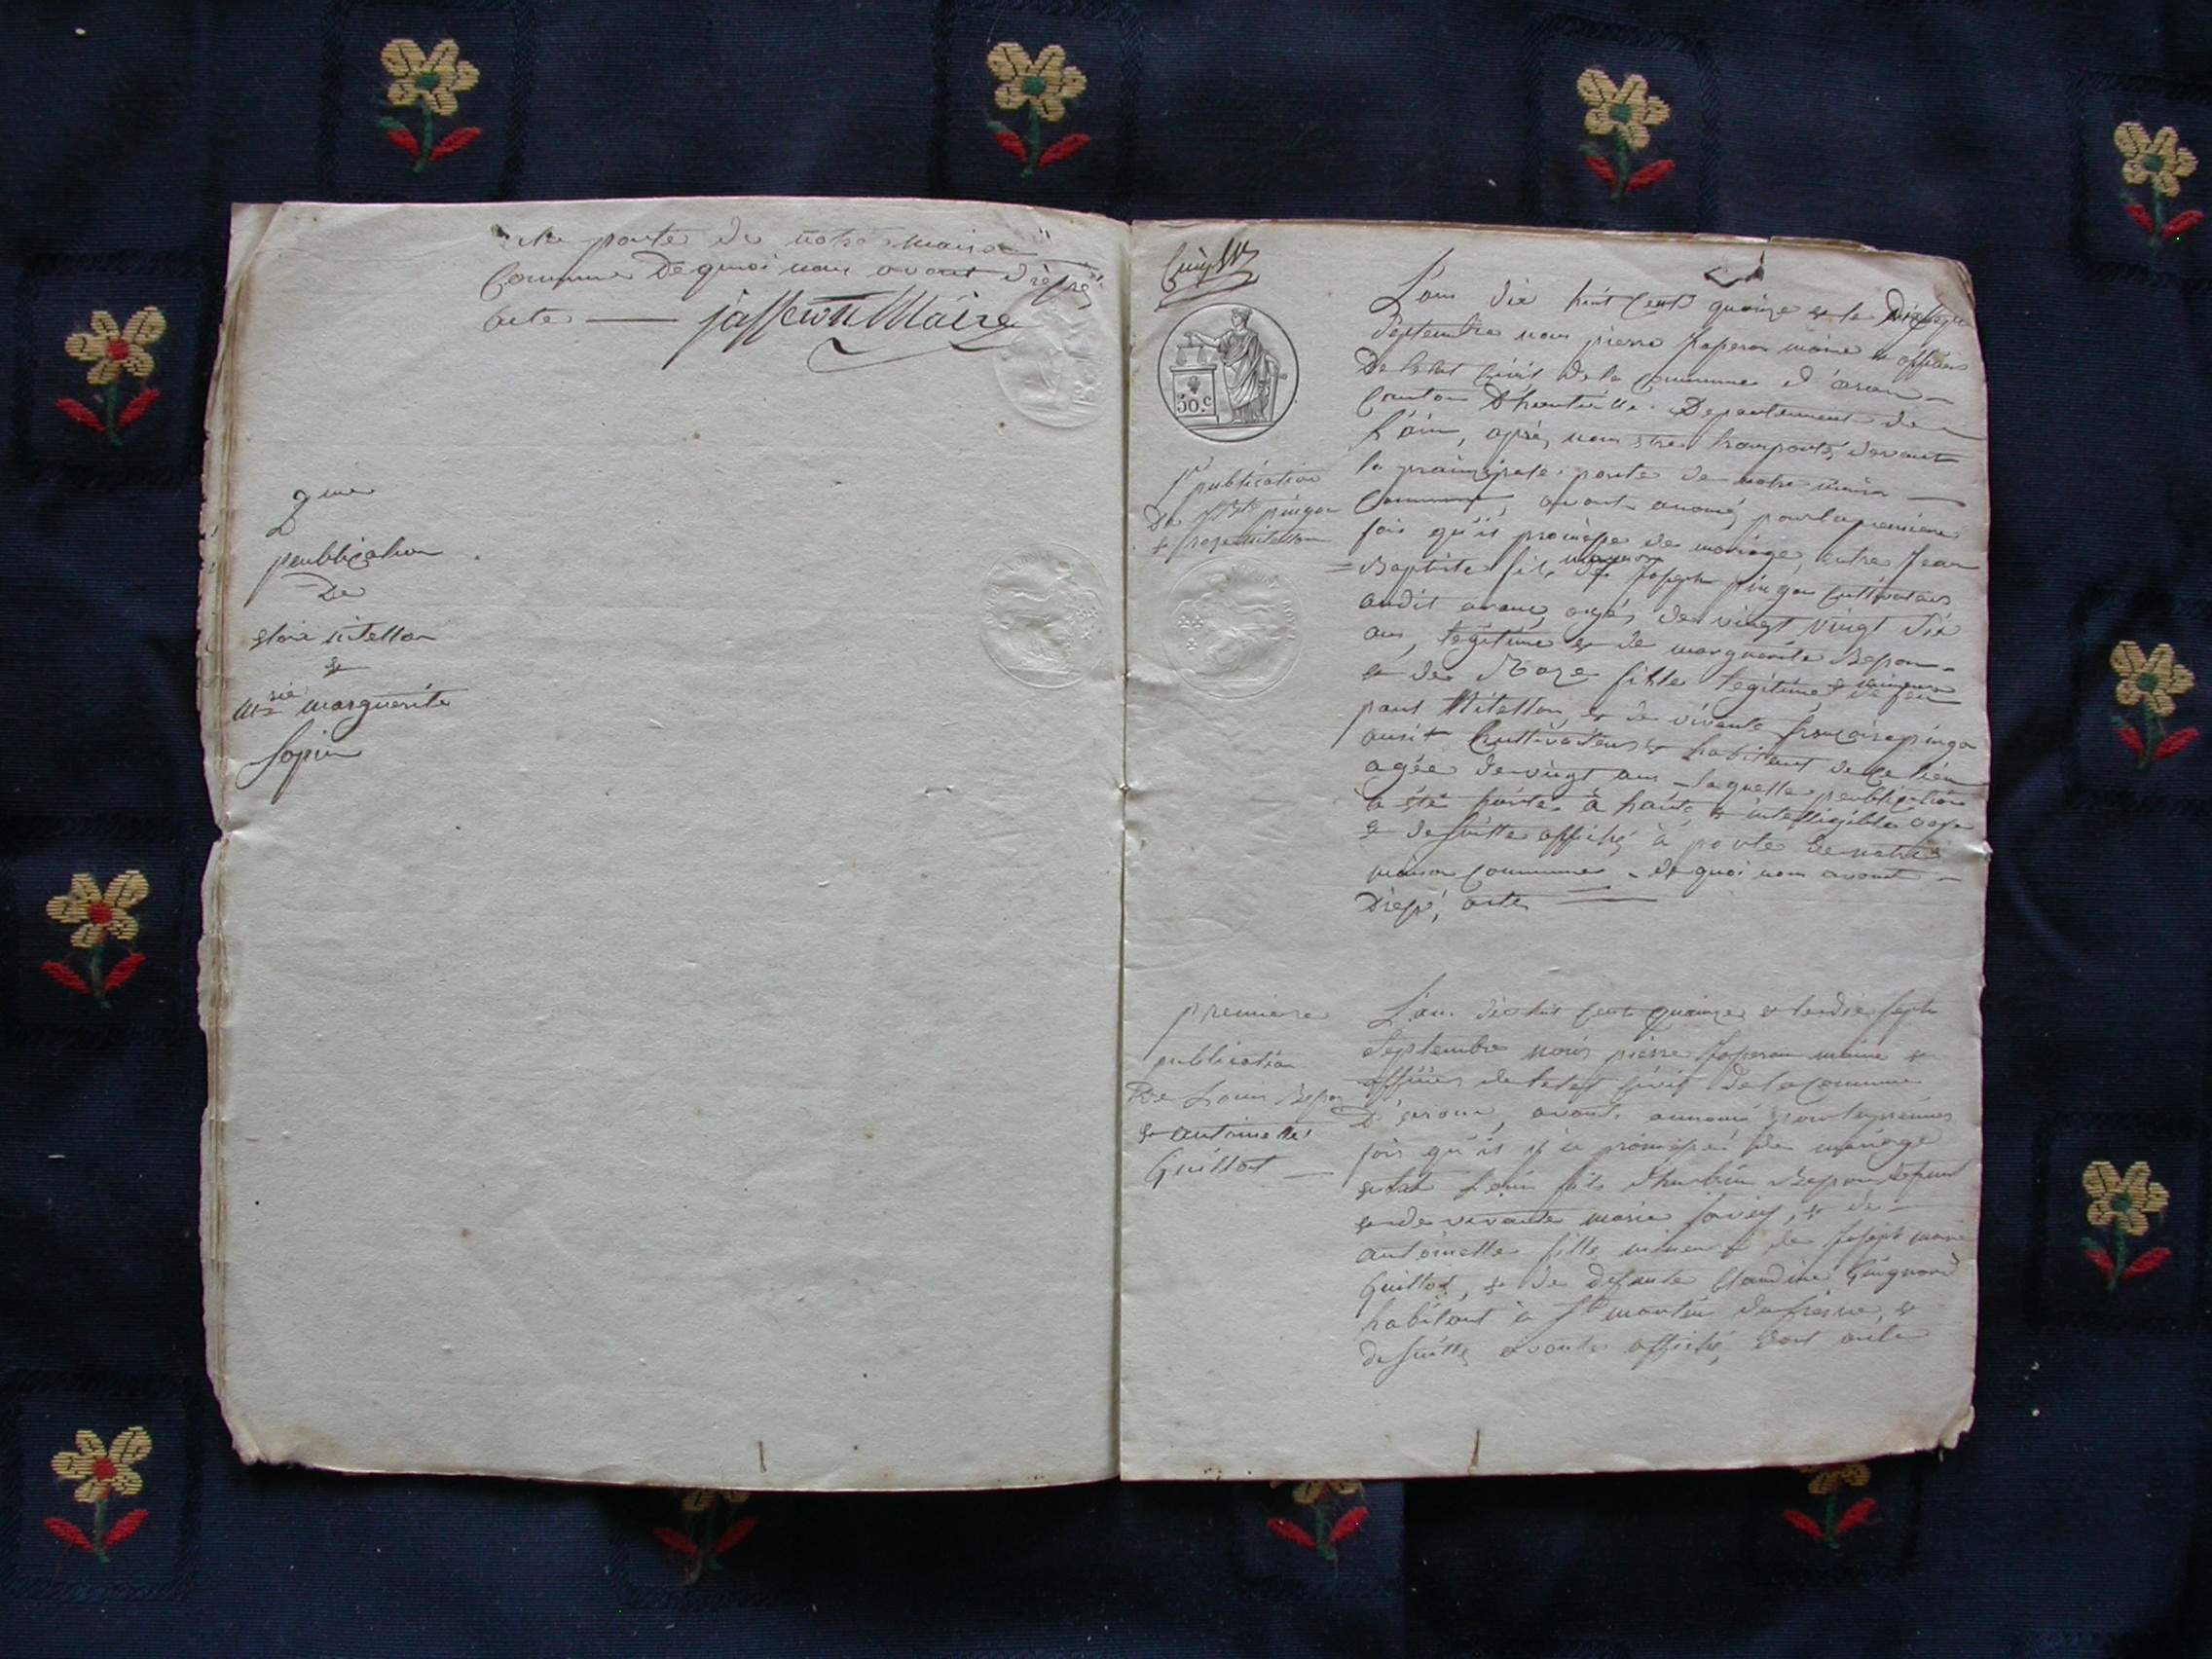 porte de notre maison
Commune De quoi nous avons Dressé
acte jasseron Maire
2me
peublication
De
vitellon
&
Mrie marguerite
sopin
50.c
L'an Dix huit Cent quainze & le Dix sept
Septembre nous pierre Jasperon maire & officier
De letat Civil de la Commune d'aran
Canton D'hautville Departement de
L'ain, après nous etre transporté devant
la prainsipale porte de notre maison
1r publication
De J Bte pingon
& roze vitellon
Commune, avont anoncé pour la premiere
fois qu'il promesse de mariage, entre Jean
Baptiste fils mageur de Joseph pingon Cultivateur
audit aranc, agés de vingt vingt Six
ans, legitime & de marguerite Bepon
& de Roze fille legitime & mineure de feu
paul Vitellon, & de vivante françoise pingon
ausit Cultivateur & habitant de Ce lieu
agée de vingt ans laquelle peublication
a été faites à haute & intelligible voix
& de suitte affiché à porte de notre
maison Commune de quoi nous avont
Dressé, acte
premiere
publication
De Louis Bepon
& antoinette
Guillot
L'an dix huit Cent quainze & le dix sept
Septembre nous pierre Jasperon maire &
officier de letat Civil De la Commune
D'arance, avont, annoncé pour la premier
fois qu'il y a promesse de mariage
entre Louis fils d'hurbin Bepon defunt
& de vivante marie savey, & de
antoinette fille mineur de Joseph marie
Guillot, & de defunte Claudine Guignard
habitant à St martin du fresne, &
de suitte avonts affiché, dont acte